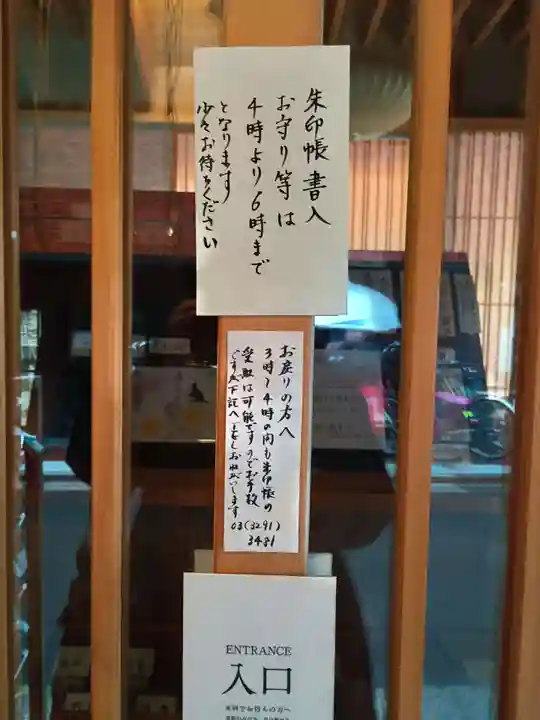 朱印帳書入
お守り等は
4時より6時まで
となります
少々お待ちください
お戻りの方へ
3時〜4時の間も朱印帳の
受取は可能ですのでお手数
ですが下記へTELおねがいします
03(3291)
3481
ENTRANCE
入口